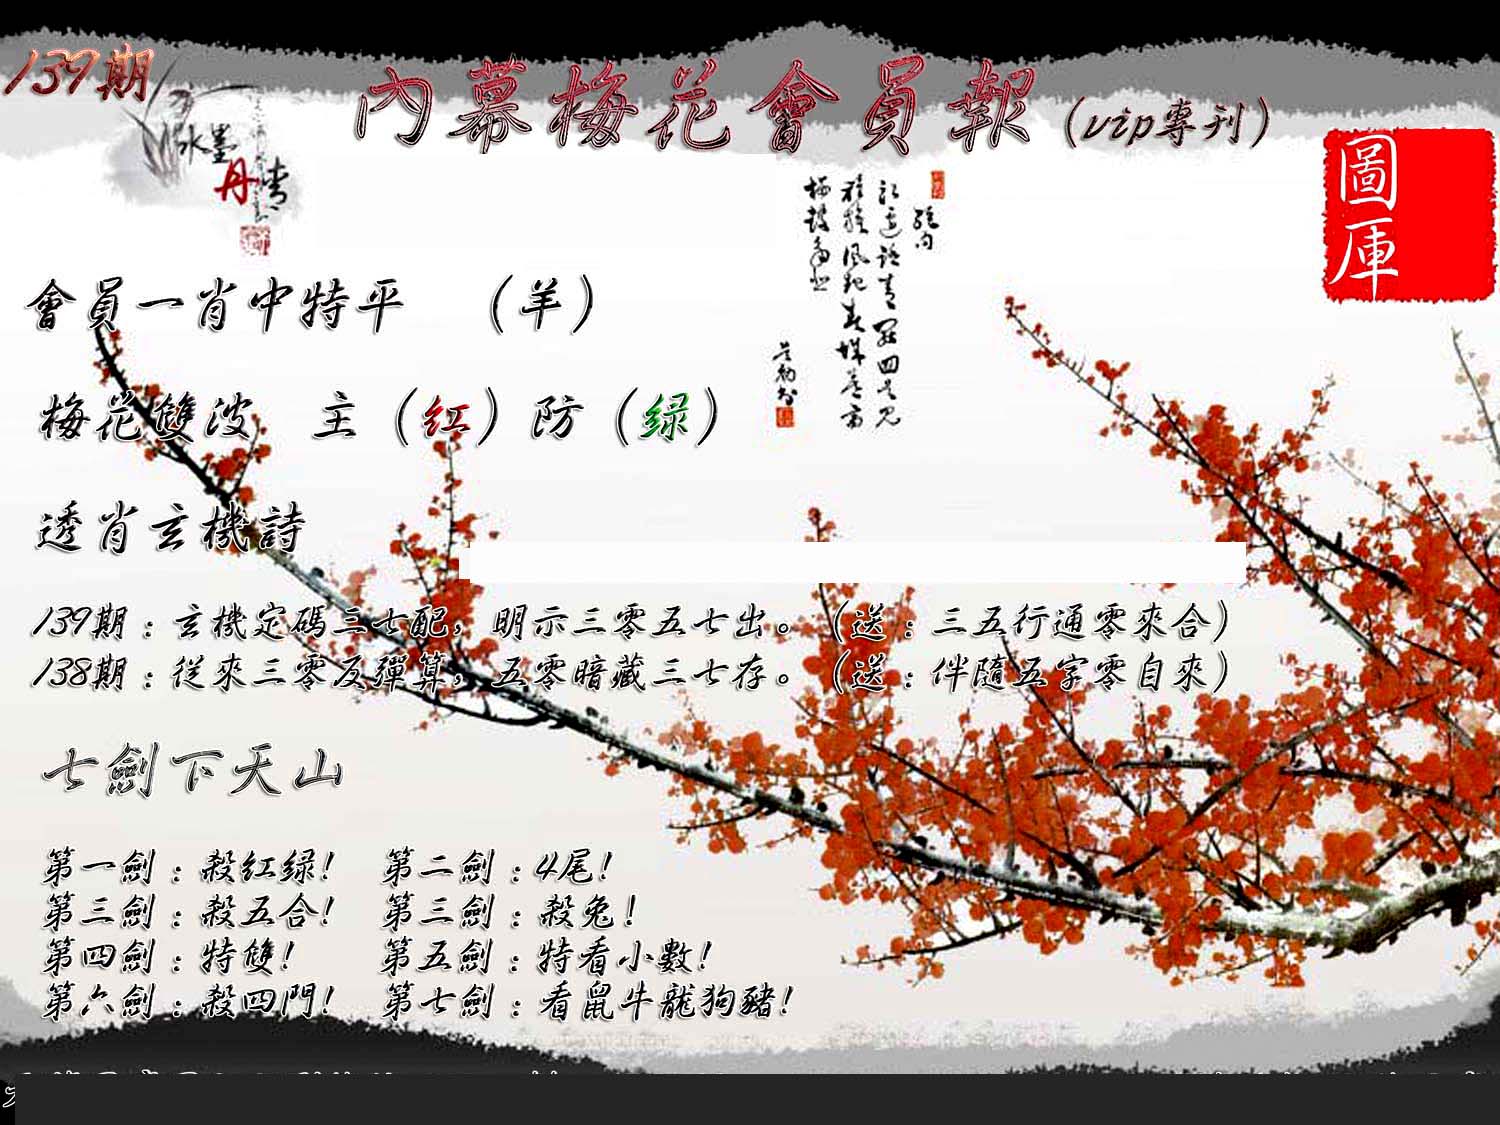 139期
內幕梅花會員報（vip專刊）
水墨
丹青
圖庫
會員一肖中特平　（羊）
梅花雙波　主（红）防（绿）
透肖玄機詩
139期：玄機定碼三七配，明示三零五七出。（送：三五行通零來合）
138期：從來三零反彈算，五零暗藏三七存。（送：伴隨五字零自來）
七劍下天山
第一劍：殺红绿！　第二劍：4尾！
第三劍：殺五合！　第三劍：殺兔！
第四劍：特雙！　第五劍：特看小數！
第六劍：殺四門！　第七劍：看鼠牛龍狗豬！